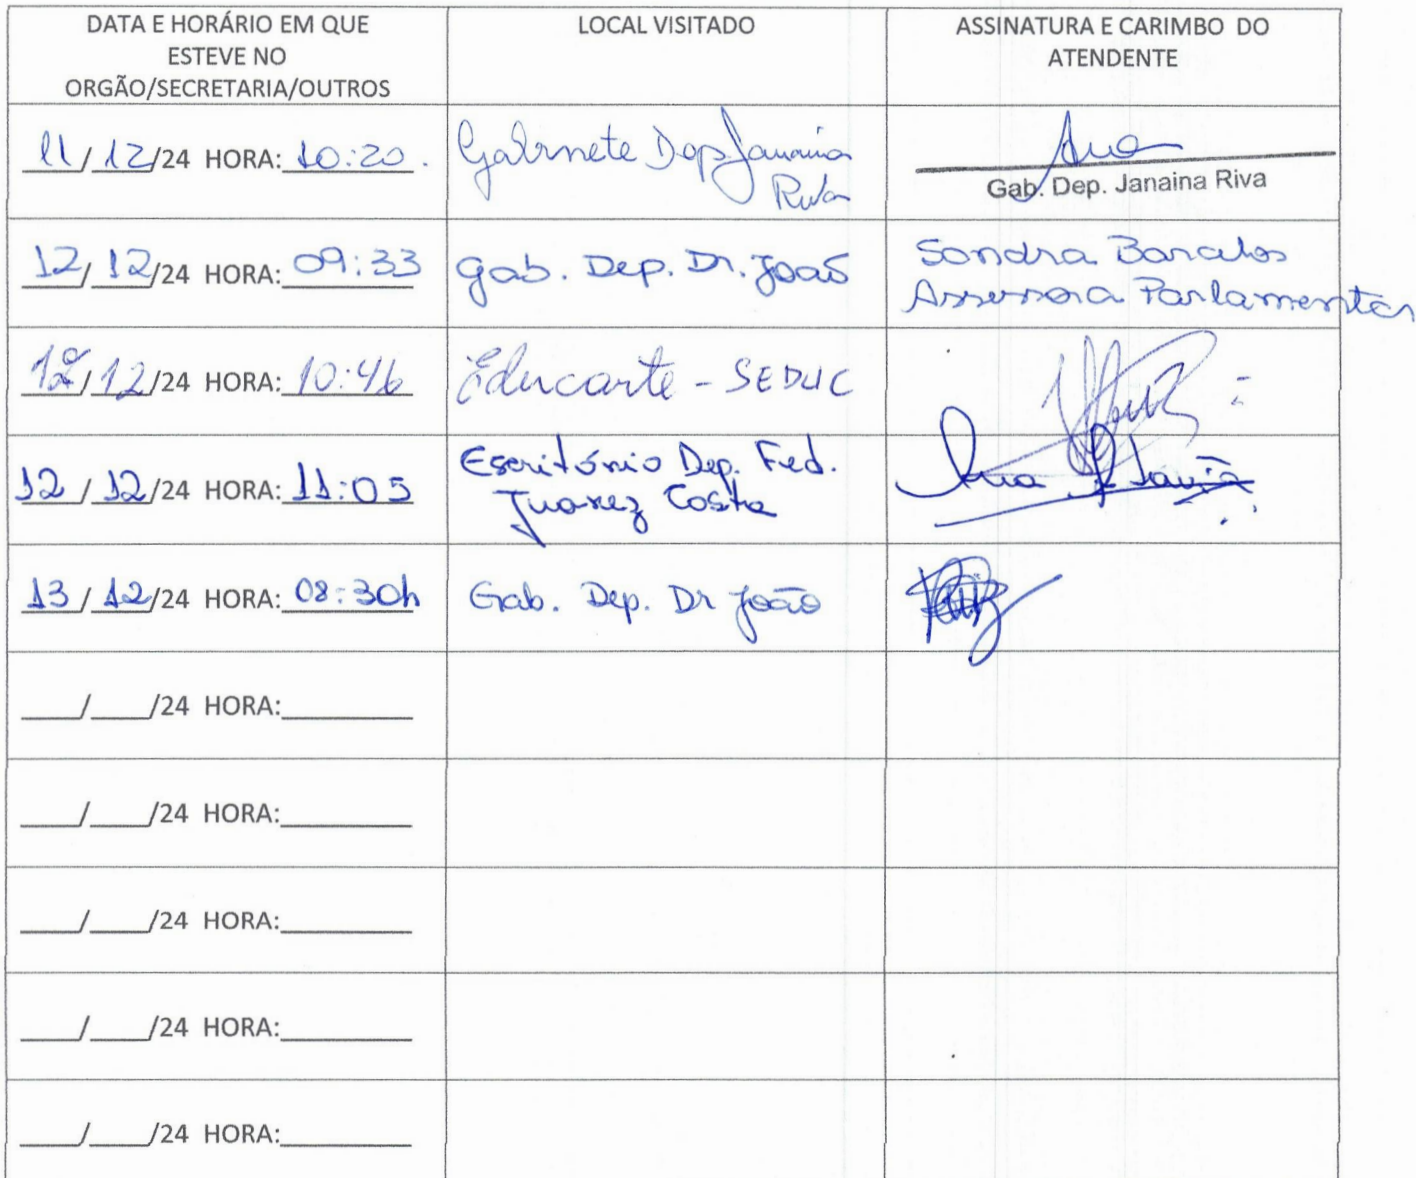 DATA E HORÁRIO EM QUE
ESTEVE NO
ORGÃO/SECRETARIA/OUTROS
LOCAL VISITADO
ASSINATURA E CARIMBO DO
ATENDENTE
11/12/24 HORA: 10:20.
Gabinete Dep Janaina
Riva
Ana
Gab. Dep. Janaina Riva
12/12/24 HORA: 09:33
Gab. Dep. Dr. João
Sandra
Assessora Parlamentar
12/12/24 HORA: 10:46
Educarte - SEDUC
12/12/24 HORA: 11:05
Escritório Dep. Fed.
Juarez Costa
Ana Flavia
13/12/24 HORA: 08:30h
Gab. Dep. Dr João
___/___/24 HORA:_________
___/___/24 HORA:_________
___/___/24 HORA:_________
___/___/24 HORA:_________
___/___/24 HORA:_________